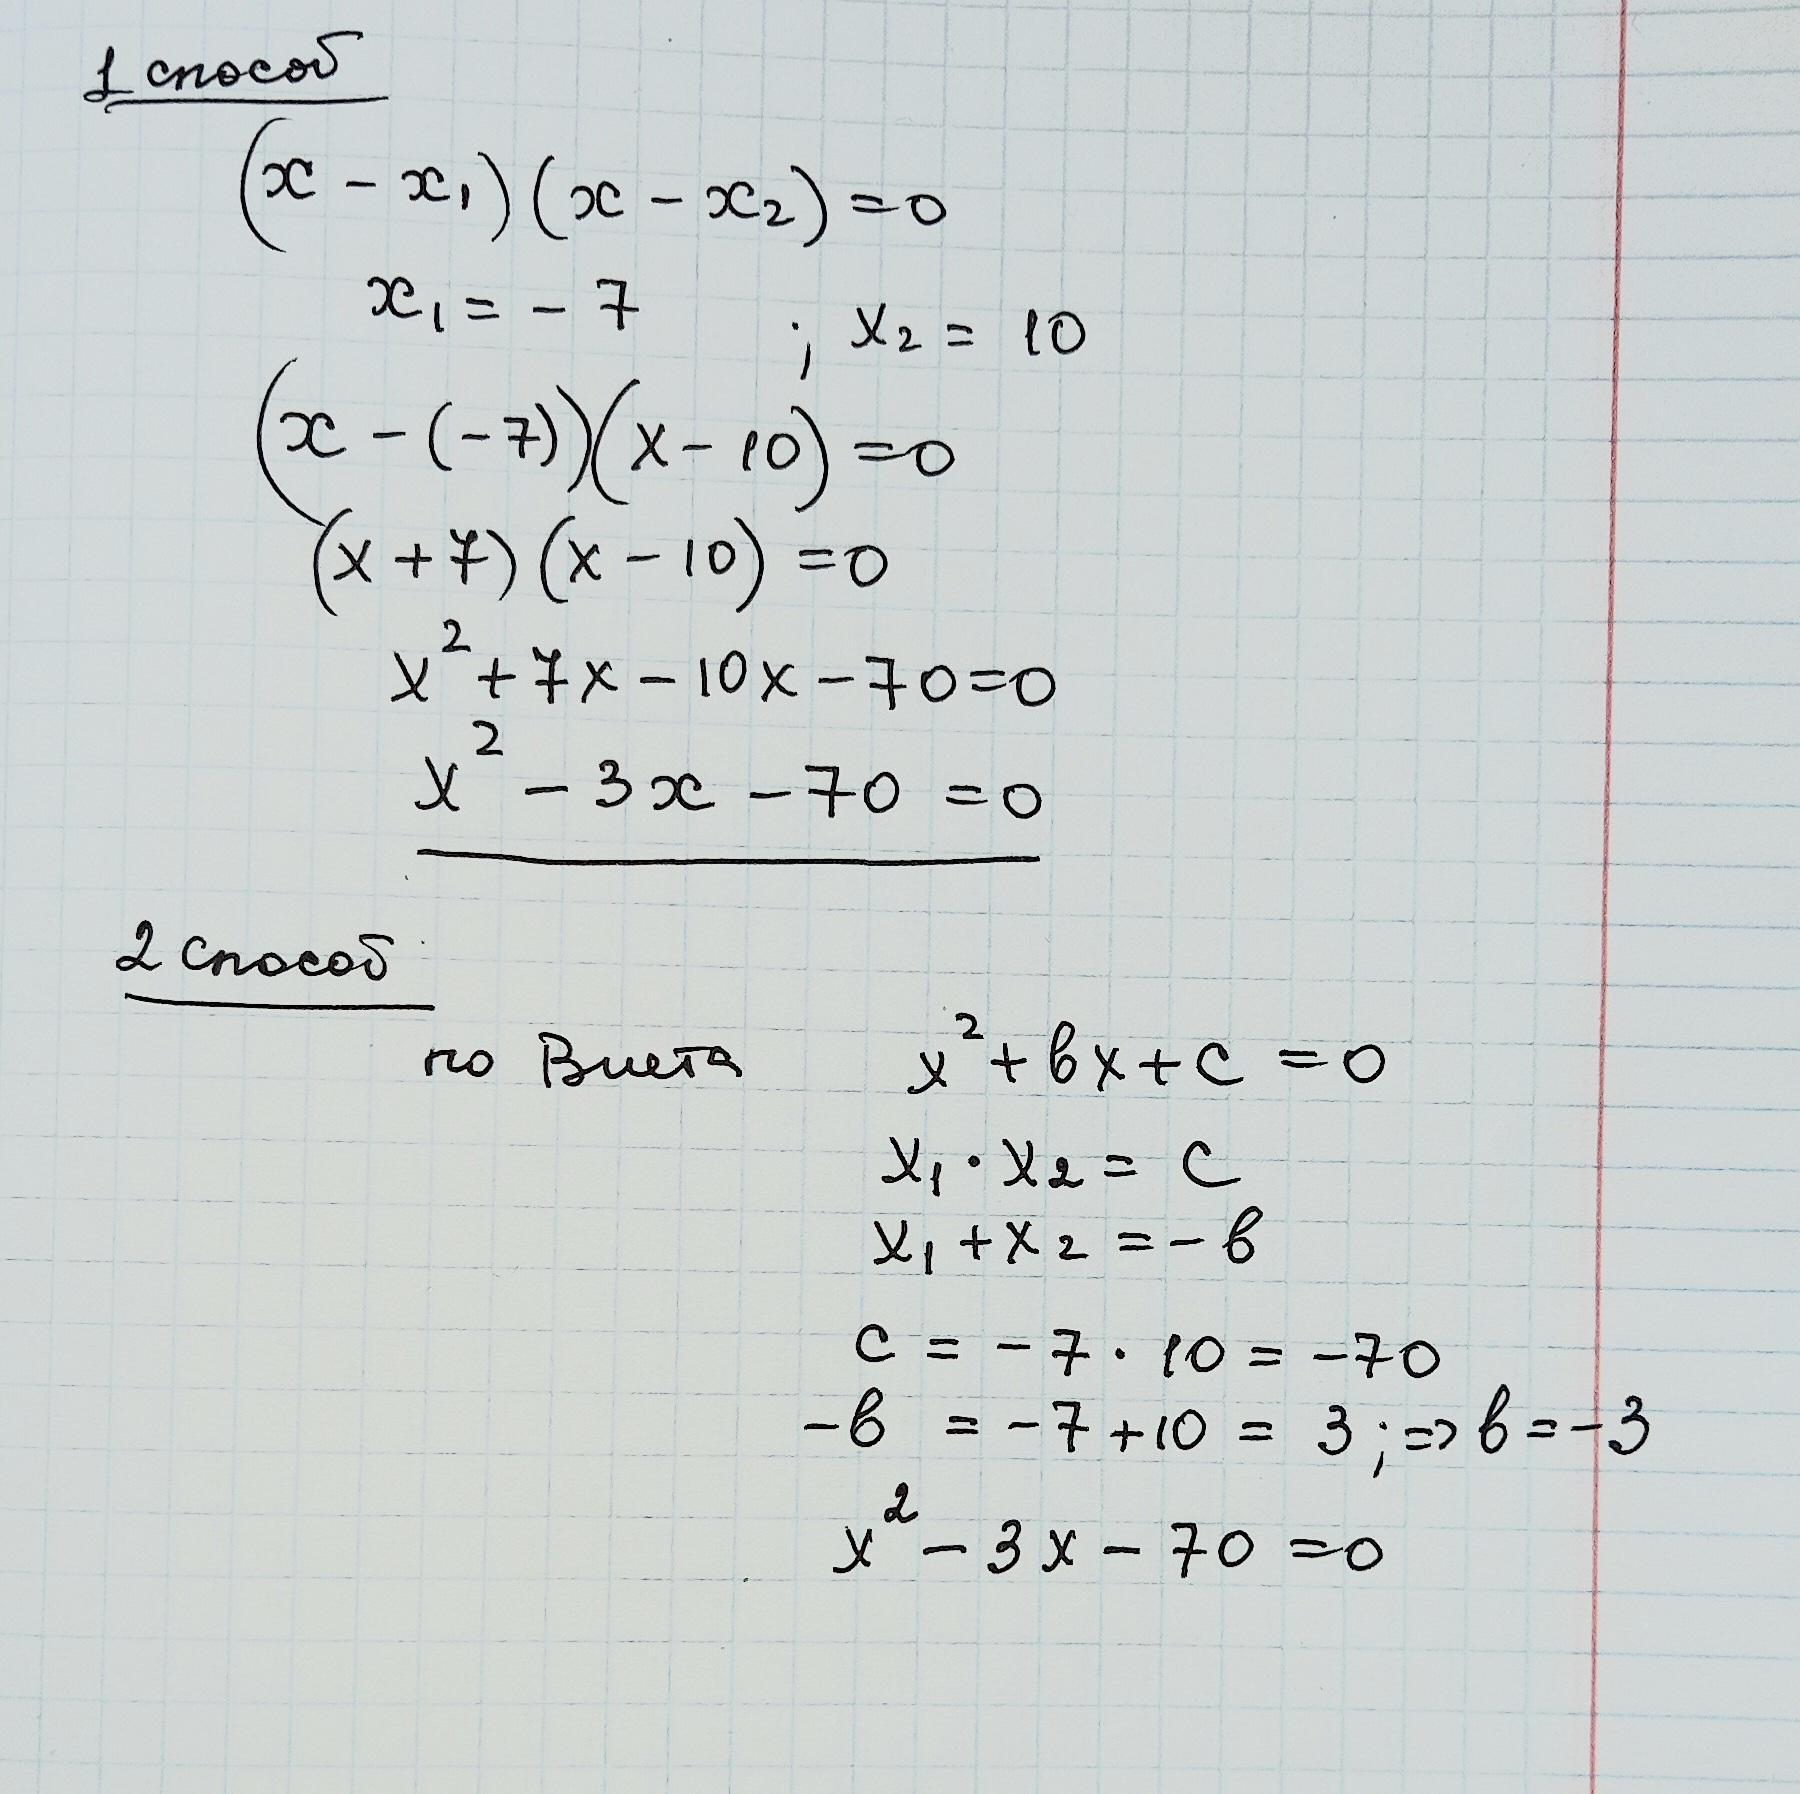 1 способ
(x - x₁) (x - x₂) = 0
x₁ = - 7 ; x₂ = 10
(x - (-7)) (x - 10) = 0
(x + 7) (x - 10) = 0
x² + 7x - 10x - 70 = 0
x² - 3x - 70 = 0
2 способ
по Виета x² + вx + c = 0
x₁ · x₂ = c
x₁ + x₂ = - в
c = - 7 · 10 = -70
-в = -7 + 10 = 3 ; => в = -3
x² - 3x - 70 = 0